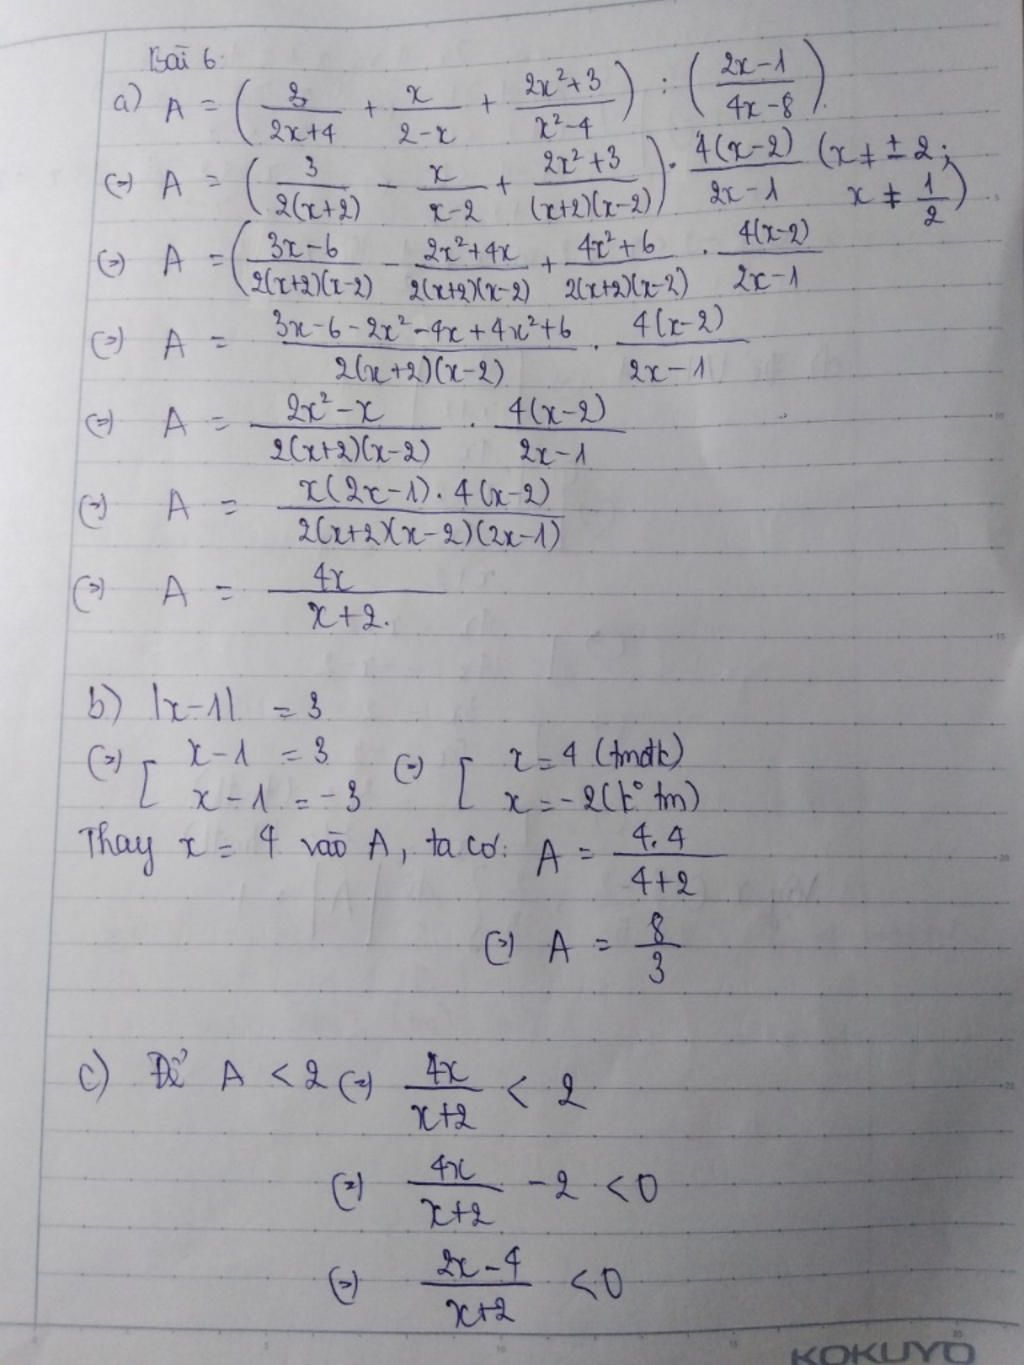 Bài 6:
a) A = ( 3/(2x+4) + x/(2-x) + (2x²+3)/(x²-4) ) : ( (2x-1)/(4x-8) ).
(=) A = ( 3/(2(x+2)) - x/(x-2) + (2x²+3)/((x+2)(x-2)) ) . 4(x-2)/(2x-1) (x ≠ ± 2; x ≠ 1/2)
(=) A = ( (3x-6)/(2(x+2)(x-2)) - (2x²+4x)/(2(x+2)(x-2)) + (4x²+6)/(2(x+2)(x-2)) . 4(x-2)/(2x-1)
(=) A = (3x-6-2x²-4x+4x²+6)/(2(x+2)(x-2)) . 4(x-2)/(2x-1)
(=) A = (2x²-x)/(2(x+2)(x-2)) . 4(x-2)/(2x-1)
(=) A = x(2x-1).4(x-2)/(2(x+2)(x-2)(2x-1))
(=) A = 4x/(x+2).
b) |x-1| = 3
(=) [ x-1 = 3 (=) [ x=4 (tmđk)
x-1 = -3 x=-2(k° tm)
Thay x = 4 vào A, ta có: A = 4.4/(4+2)
(=) A = 8/3
c) Để A < 2 (=) 4x/(x+2) < 2
(=) 4x/(x+2) - 2 < 0
(=) (2x-4)/(x+2) < 0
KOKUYO